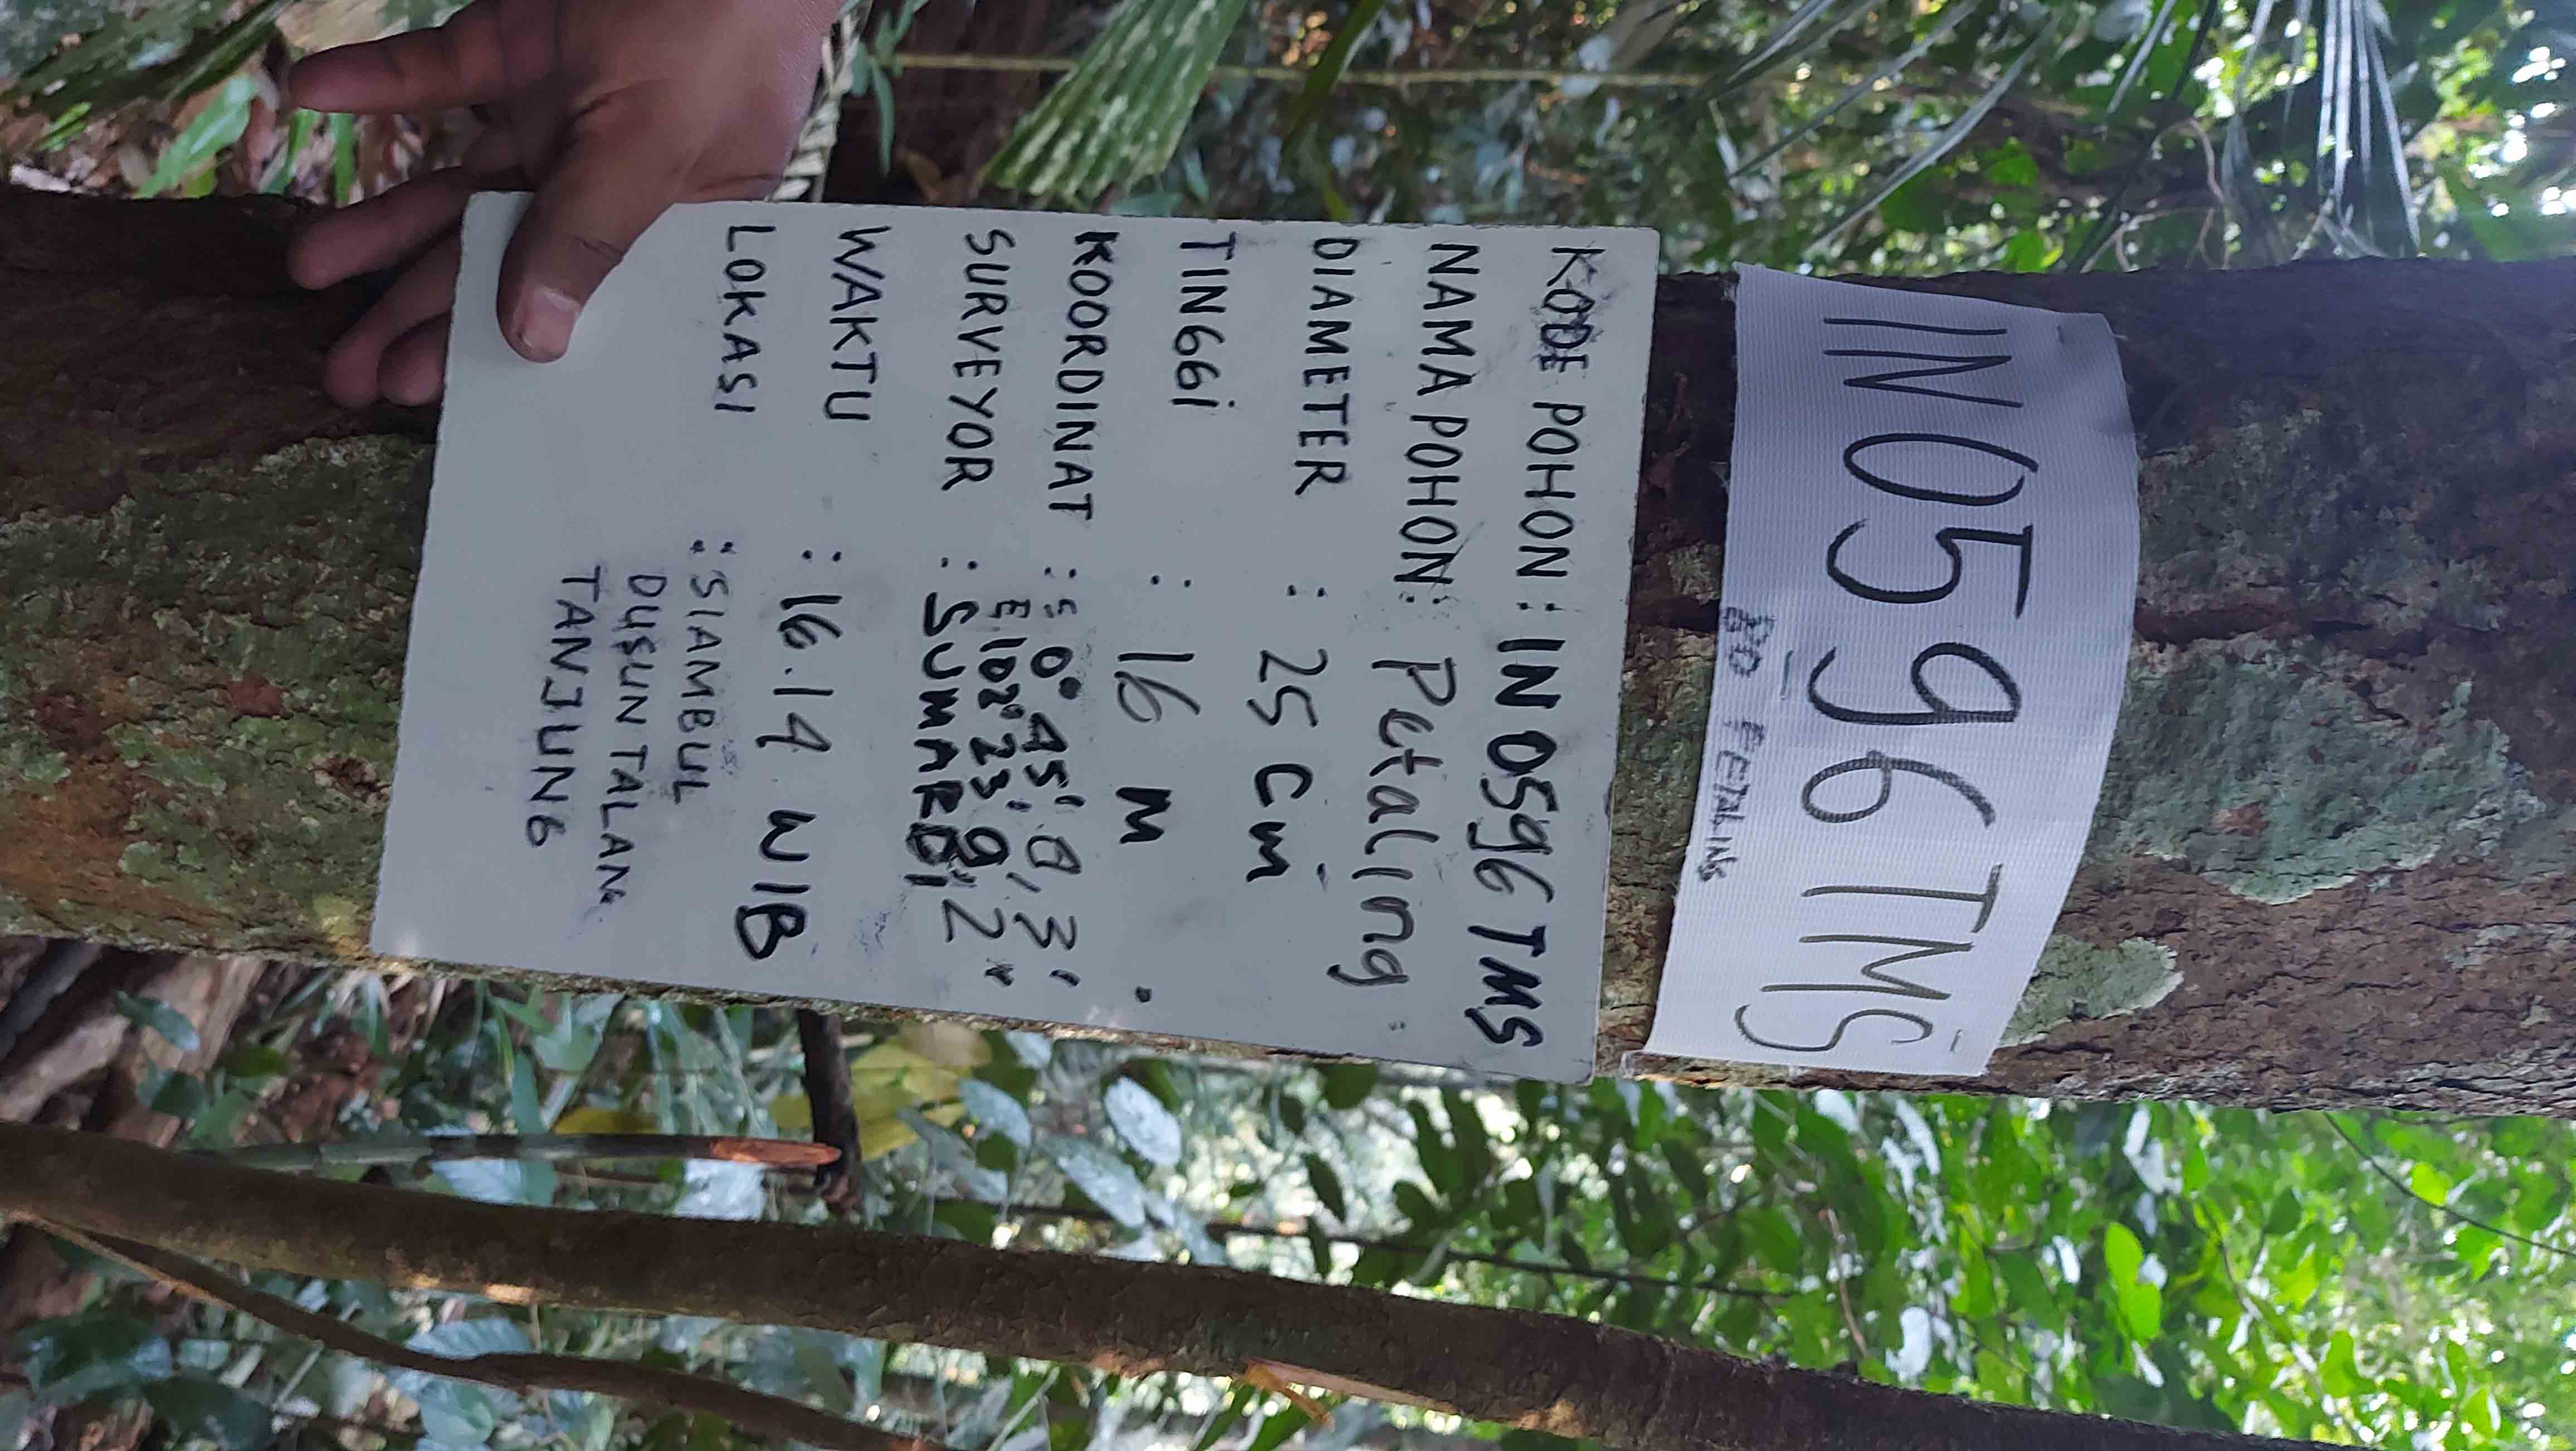 IN0596TMS
PETALING
KODE POHON : IN 0596 TMS
NAMA POHON: Petaling
DIAMETER : 25 Cm
TINGGi : 16 m
KOORDINAT : S 0° 45', 8, 3'
E 102° 23' 9, 2"
SURVEYOR : SUMARDi
WAKTU : 16.14 WIB
LOKASI : SIAMBUL
DUSUN TALANG
TANJUNG